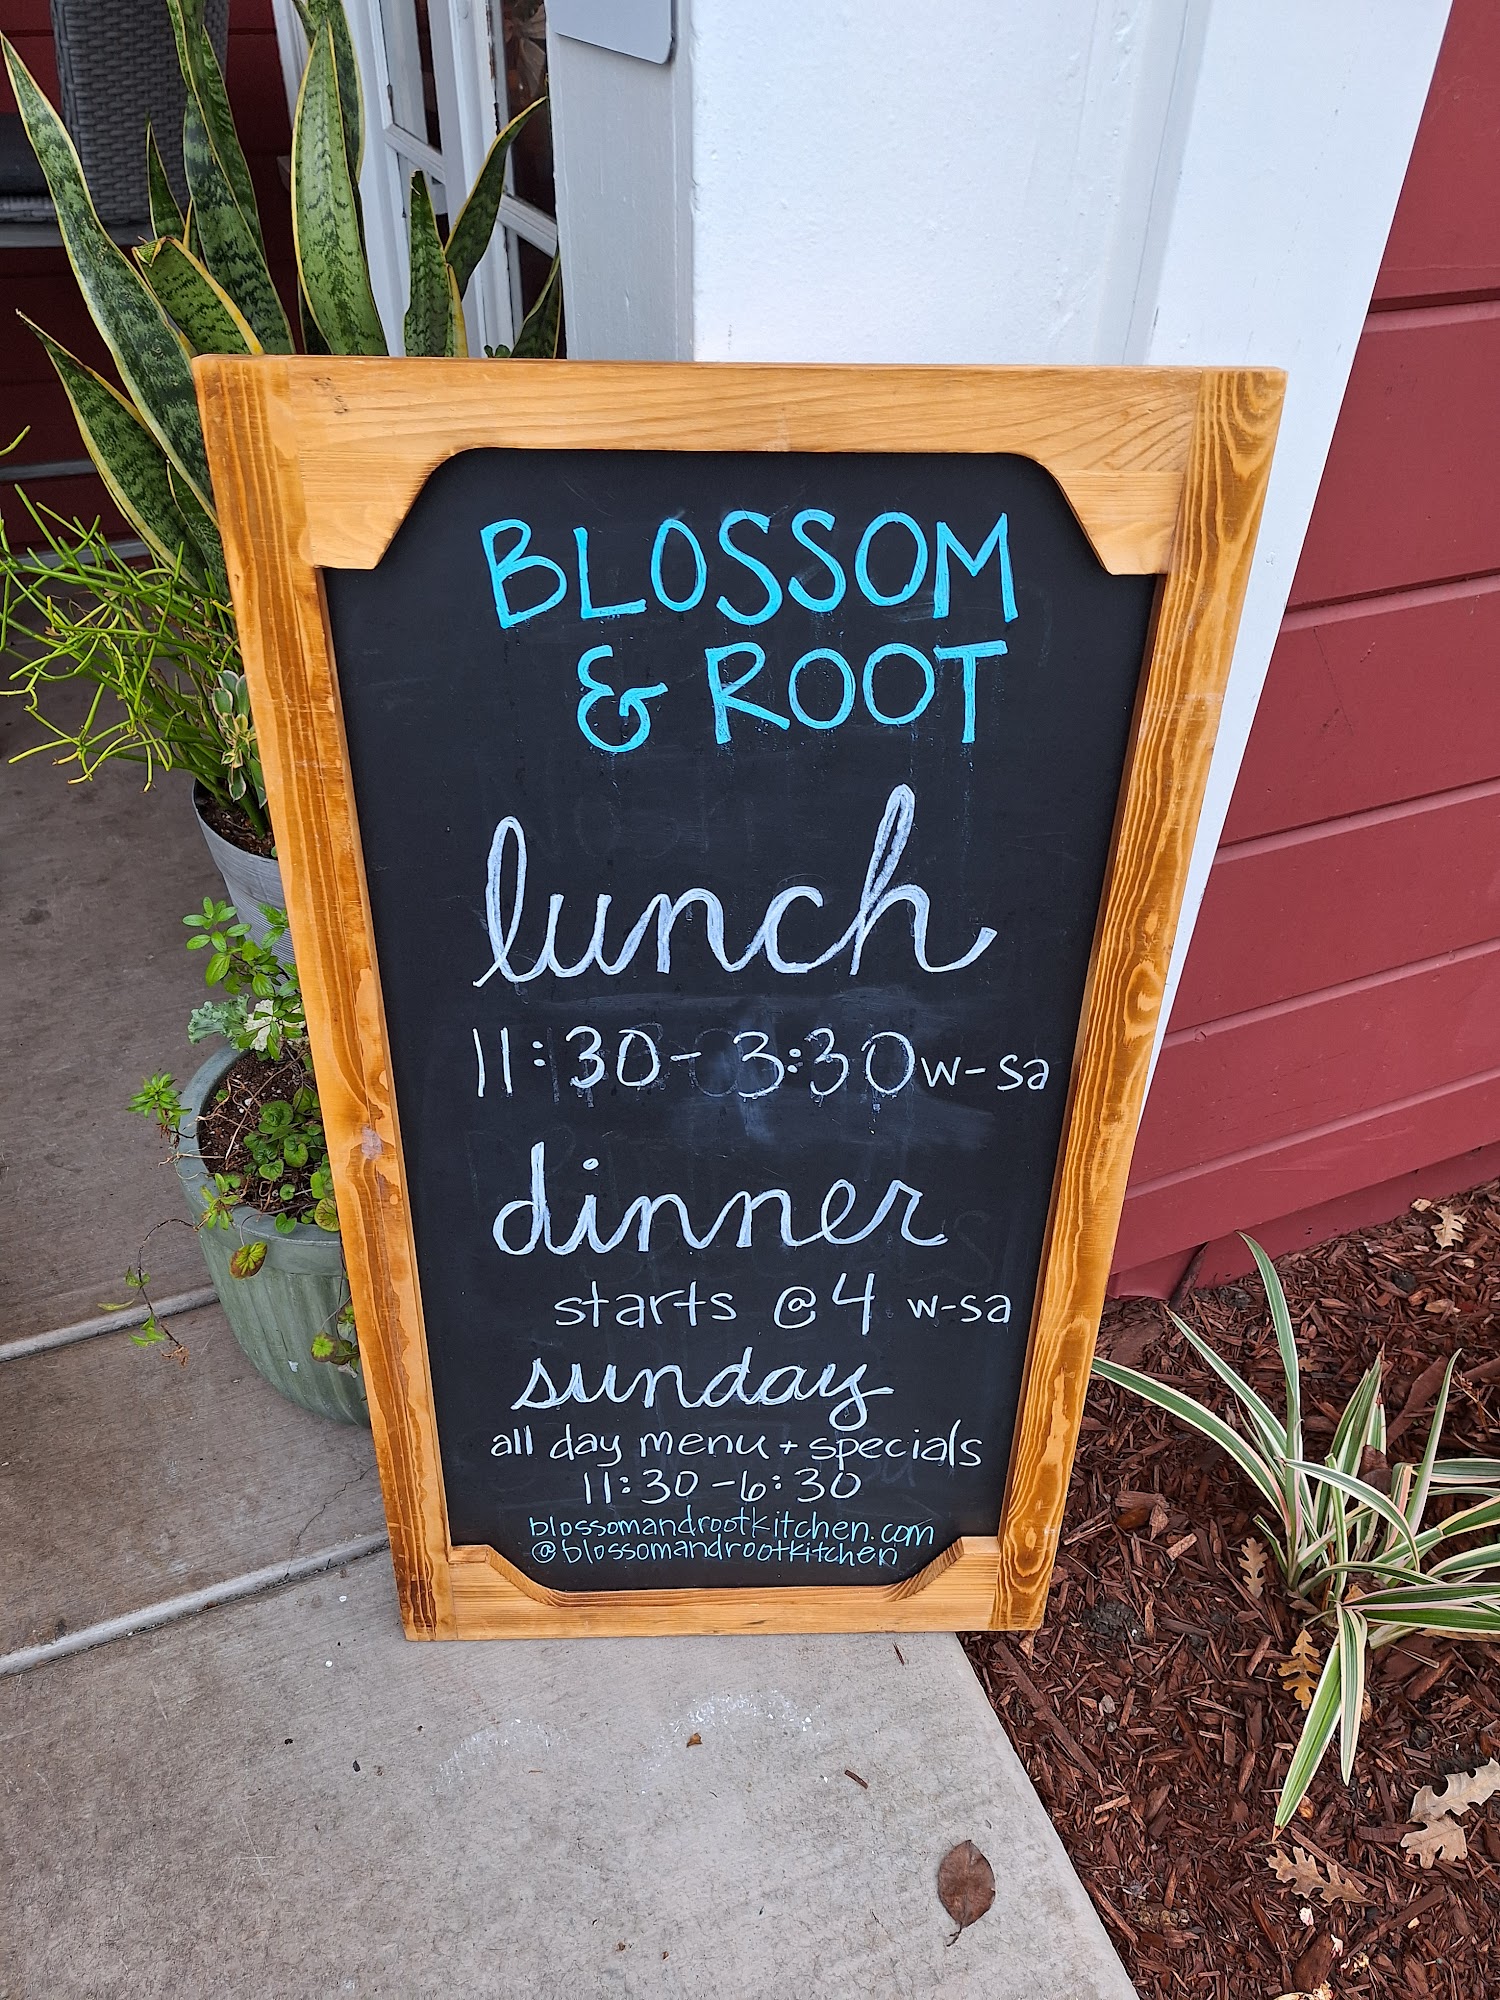 BLOSSOM
& ROOT
lunch
11:30 - 3:30 w-sa
dinner
starts @ 4 w-sa
sunday
all day menu + specials
11:30 - 6:30
blossomandrootkitchen.com
@blossomandrootkitchen